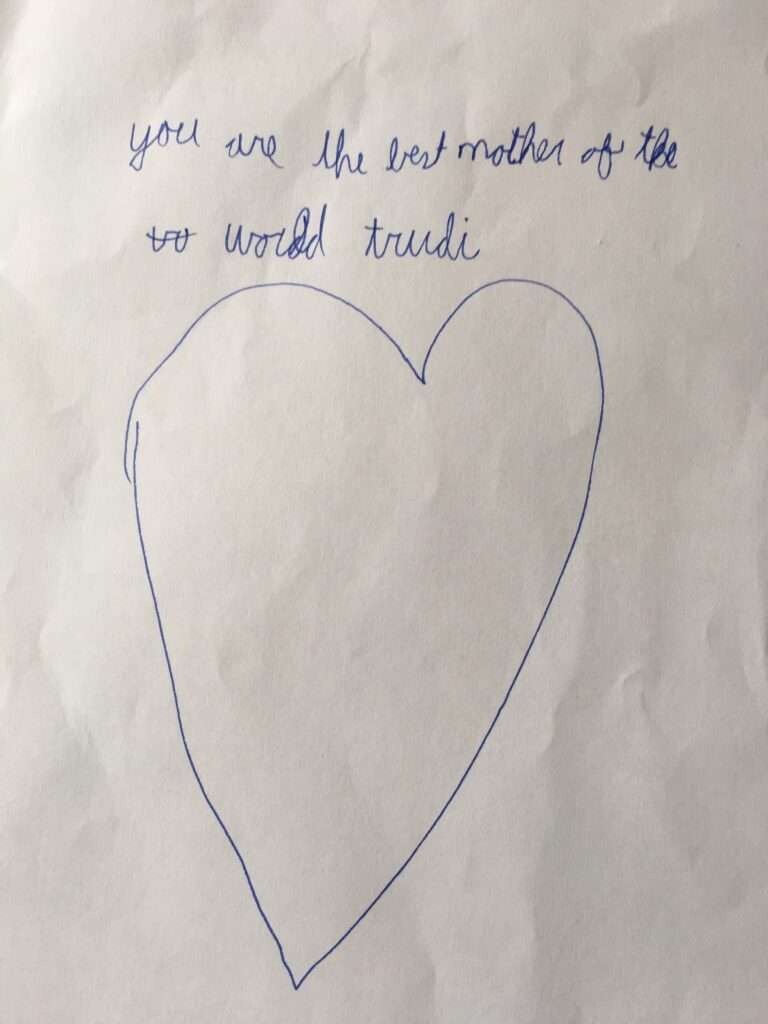 you are the best mother of the
world trudi